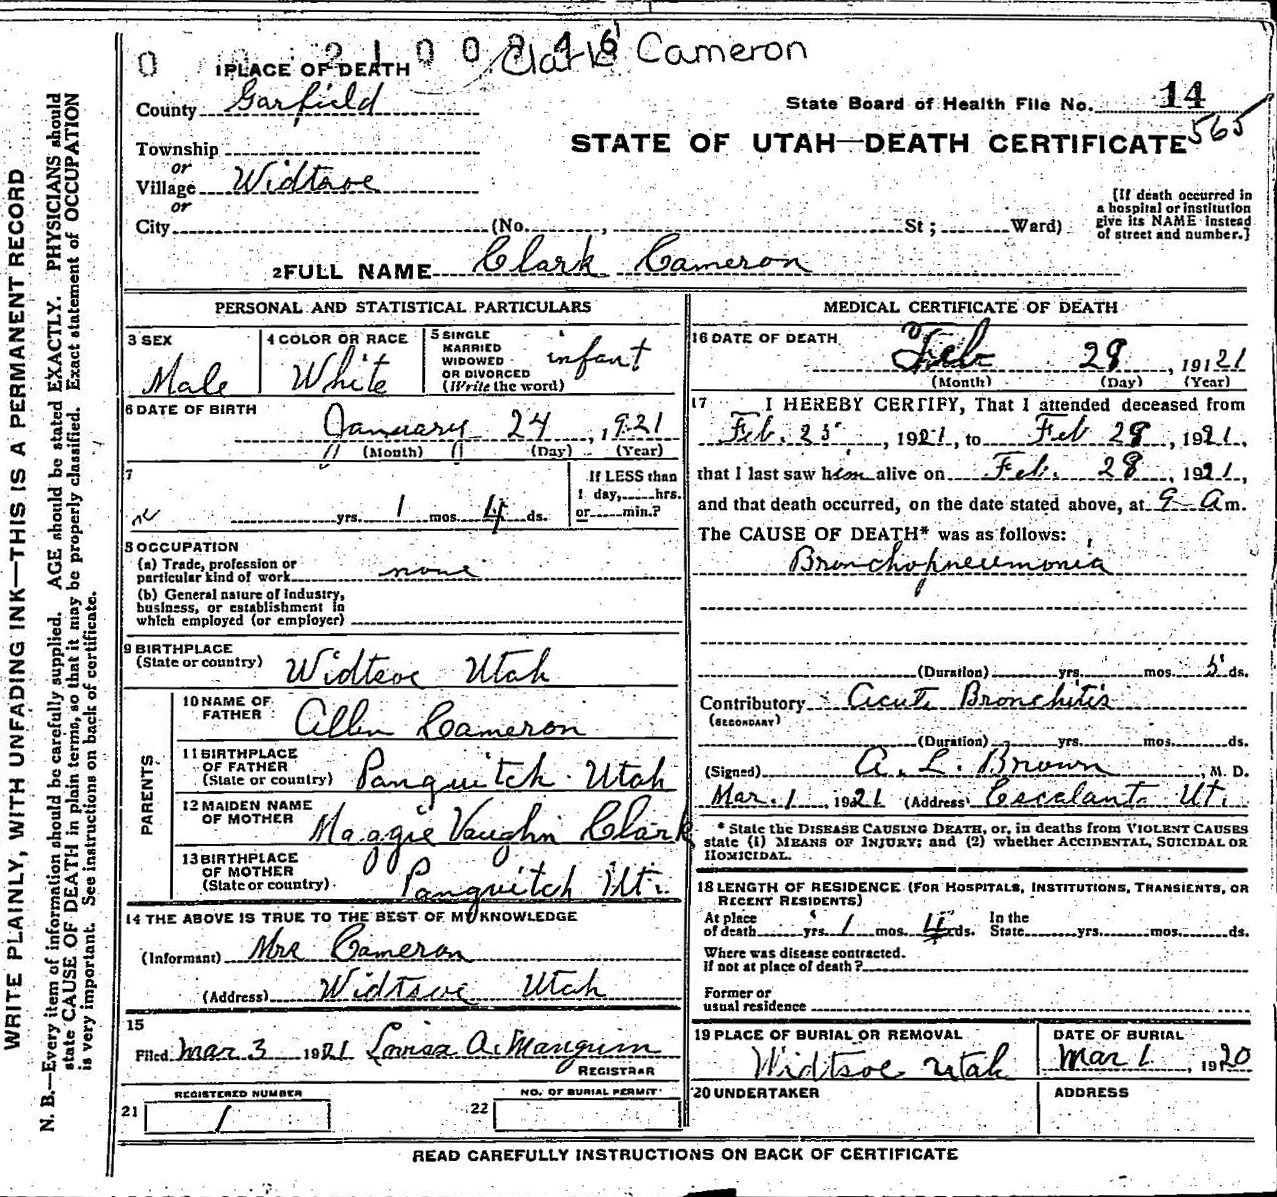 0 2100246 Clark Cameron
1 PLACE OF DEATH
County Garfield
State Board of Health File No. 14
565
STATE OF UTAH—DEATH CERTIFICATE
Township
or
Village Widtsoe
or
City (No. , St ; Ward)
[If death occurred in
a hospital or institution
give its NAME instead
of street and number.]
2 FULL NAME Clark Cameron
PERSONAL AND STATISTICAL PARTICULARS
3 SEX
Male
4 COLOR OR RACE
White
5 SINGLE
MARRIED
WIDOWED
OR DIVORCED
(Write the word)
infant
6 DATE OF BIRTH
January 24, 1921
(Month) (Day) (Year)
7
yrs. 1 mos. 4 ds.
If LESS than
1 day, hrs.
or min.?
8 OCCUPATION
(a) Trade, profession or
particular kind of work none
(b) General nature of industry,
business, or establishment in
which employed (or employer)
9 BIRTHPLACE
(State or country) Widtsoe Utah
PARENTS
10 NAME OF
FATHER Allen Cameron
11 BIRTHPLACE
OF FATHER
(State or country) Panguitch Utah
12 MAIDEN NAME
OF MOTHER Maggie Vaughn Clark
13 BIRTHPLACE
OF MOTHER
(State or country) Panguitch Ut.
14 THE ABOVE IS TRUE TO THE BEST OF MY KNOWLEDGE
(Informant) Mrs Cameron
(Address) Widtsoe Utah
15
Filed Mar 3 1921 Lovisa A. Mangum
REGISTRAR
REGISTERED NUMBER
21 1
NO. OF BURIAL PERMIT
22
MEDICAL CERTIFICATE OF DEATH
16 DATE OF DEATH
Feb 28, 19121
(Month) (Day) (Year)
17 I HEREBY CERTIFY, That I attended deceased from
Feb. 25, 1921, to Feb 28, 1921,
that I last saw him alive on Feb. 28, 1921,
and that death occurred, on the date stated above, at 9 a m.
The CAUSE OF DEATH* was as follows:
Bronchopneumonia
(Duration) yrs. mos. 5 ds.
Contributory Acute Bronchitis
(SECONDARY)
(Duration) yrs. mos. ds.
(Signed) A. L. Brown, M. D.
Mar. 1 1921 (Address) Escalante Ut.
* State the DISEASE CAUSING DEATH, or, in deaths from VIOLENT CAUSES
state (1) MEANS OF INJURY; and (2) whether ACCIDENTAL, SUICIDAL OR
HOMICIDAL.
18 LENGTH OF RESIDENCE (FOR HOSPITALS, INSTITUTIONS, TRANSIENTS, OR
RECENT RESIDENTS)
At place In the
of death yrs. 1 mos. 4 ds. State yrs. mos. ds.
Where was disease contracted.
If not at place of death?
Former or
usual residence
19 PLACE OF BURIAL OR REMOVAL
Widtsoe Utah
DATE OF BURIAL
Mar 1, 1920
20 UNDERTAKER
ADDRESS
READ CAREFULLY INSTRUCTIONS ON BACK OF CERTIFICATE
WRITE PLAINLY, WITH UNFADING INK—THIS IS A PERMANENT RECORD
N. B.—Every item of information should be carefully supplied. AGE should be stated EXACTLY. PHYSICIANS should
state CAUSE OF DEATH in plain terms, so that it may be properly classified. Exact statement of OCCUPATION
is very important. See instructions on back of certificate.